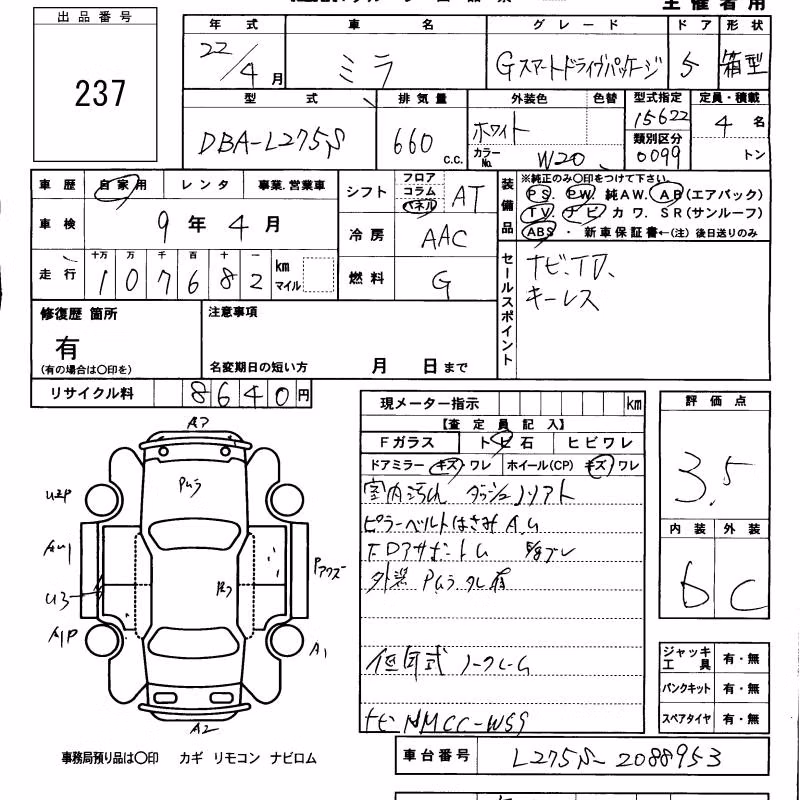 主催者用
出品番号
237
年式 車名 グレード ドア 形状
22/4月 ミラ Gスマートドライヴパッケージ 5 箱型
型式 排気量 外装色 色替 型式指定 定員・積載
DBA-L275S 660 C.C. ホワイト 15622 4名
カラーNo. W20 類別区分 0099 トン
車歴 自家用 レンタ 事業.営業車
車検 9年4月
走行 十万 万 千 百 十 一
107682 km マイル
シフト フロア コラム パネル AT
冷房 AAC
燃料 G
装備品 ※純正のみ〇印をつけて下さい。
PS. PW. 純AW. AB(エアバック)
TV. ナビ カワ. SR(サンルーフ)
ABS ・ 新車保証書←(注) 後日送りのみ
セールスポイント
ナビ、TV、
キーレス
修復歴 箇所
有
(有の場合は〇印を)
注意事項
名変期日の短い方 月 日まで
リサイクル料 8640円
現メーター指示 km
【査定員記入】
Fガラス トビ石 ヒビワレ
ドアミラー キズ ワレ ホイール(CP) キズ ワレ
室内汚れ
ピラーベルトはさみA.U
外装 PUラ
ナビ NMCC-W59
評価点
3.5
内装 外装
D C
ジャッキ 工具 有・無
パンクキット 有・無
スペアタイヤ 有・無
A2
U2P
A1P
U3
A1
A2
事務局預り品は〇印 カギ リモコン ナビロム
車台番号 L275S-2088953